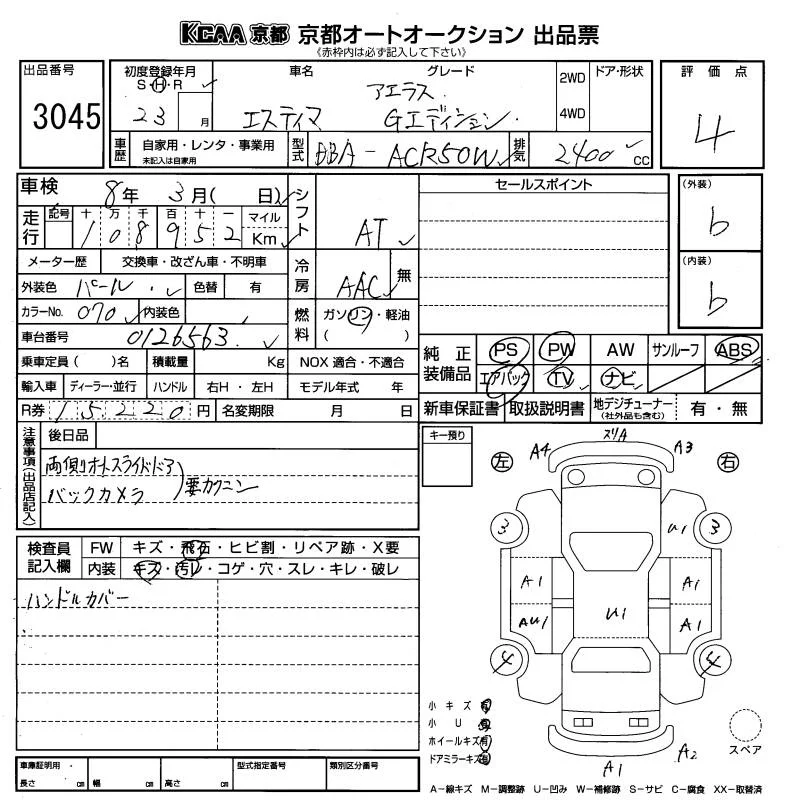 KCAA 京都 京都オートオークション 出品票
《赤枠内は必ず記入して下さい》
出品番号
3045
初度登録年月
S・H・R
23
月
車名
グレード
エスティマ
アエラス
Gエディション
2WD
4WD
ドア・形状
評価点
4
車歴
自家用・レンタ・事業用
未記入は自家用
型式
DBA-ACR50W
排気
2400
cc
車検
8年 3月( 日)
シフト
AT
走行
記号
十 万 千 百 十 一
1 0 8 9 5 2
マイル
Km
メーター歴
交換車・改ざん車・不明車
冷房
AAC
無
外装色
パール
色替
有
カラーNo.
070
内装色
燃料
ガソリン・軽油
( )
車台番号
0126563
乗車定員 ( )名
積載量
Kg
NOX 適合・不適合
輸入車
ディーラー・並行
ハンドル
右H・左H
モデル年式 年
R券
15220円
名変期限 月 日
セールスポイント
(外装)
b
(内装)
b
純正装備品
PS
PW
AW
サンルーフ
ABS
エアバック
TV
ナビ
新車保証書
取扱説明書
地デジチューナー
(社外品も含む)
有・無
注意事項(出品店記入)
後日品
両側オートスライドドア
バックカメラ
要カクニン
キー預り
検査員記入欄
FW
キズ・飛石・ヒビ割・リペア跡・X要
内装
キズ・汚レ・コゲ・穴・スレ・キレ・破レ
ハンドルカバー
左
右
A4
スリA
A3
3
U1
3
A1
A1
AU1
U1
A1
4
4
A1
A2
小キズ 有
小U 有
ホイールキズ 有
ドアミラーキズ 有
スペア
車庫証明用
長さ cm
幅 cm
高さ cm
型式指定番号
類別区分番号
A-線キズ M-調整跡 U-凹み W-補修跡 S-サビ C-腐食 XX-取替済